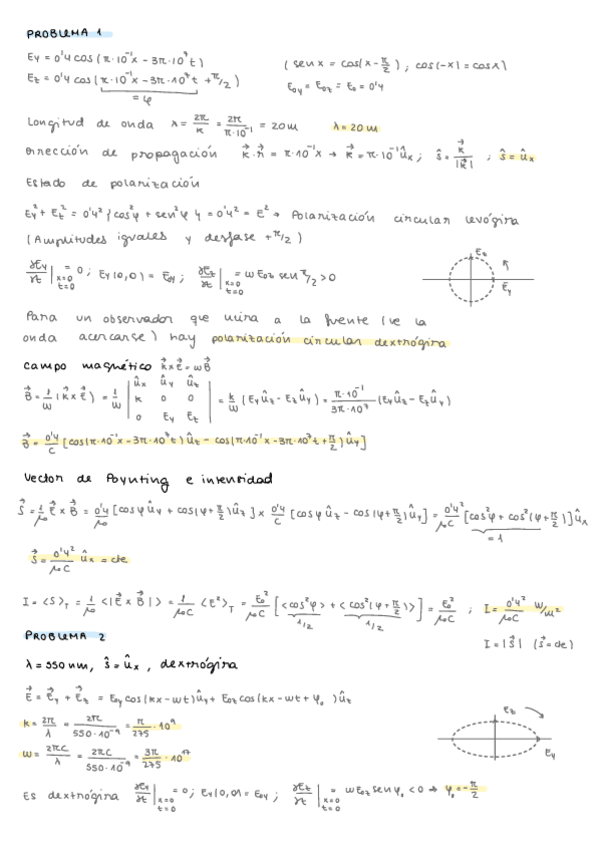 PROBLEMA 1
Ey = 0'4 cos(π·10⁻¹x - 3π·10⁷t) (sen x = cos(x - π/2) ; cos(-x) = cos x)
Ez = 0'4 cos(π·10⁻¹x - 3π·10⁷t + π/2) Eoy = Eoz = Eo = 0'4
= φ
Longitud de onda λ = 2π/k = 2π/π·10⁻¹ = 20 m λ = 20 m
Dirección de propagación k⃗·r⃗ = π·10⁻¹x → k⃗ = π·10⁻¹ûx ; ŝ = k⃗/|k⃗| ; ŝ = ûx
Estado de polarización
Ey² + Ez² = 0'4² {cos²φ + sen²φ} = 0'4² = E² → Polarización circular levógira
(Amplitudes iguales y desfase + π/2)
∂Ey/∂t |x=0 t=0 = 0 ; Ey(0,0) = Eoy ; ∂Ez/∂t |x=0 t=0 = ωEoz sen π/2 > 0
Ez
Ey
Para un observador que mira a la fuente (ve la
onda acercarse) hay polarización circular dextrógira
Campo magnético k⃗ x E⃗ = ωB⃗
B⃗ = 1/ω (k⃗ x E⃗) = 1/ω | ûx ûy ûz ; k 0 0 ; 0 Ey Ez | = k/ω (Eyûz - Ezûy) = π·10⁻¹/3π·10⁷ (Eyûz - Ezûy)
B⃗ = 0'4/c [cos(π·10⁻¹x - 3π·10⁷t)ûz - cos(π·10⁻¹x - 3π·10⁷t + π/2)ûy]
Vector de Poynting e intensidad
S⃗ = 1/μo E⃗ x B⃗ = 0'4/μo [cosφ ûy + cos(φ + π/2)ûz] x 0'4/c [cosφ ûz - cos(φ + π/2)ûy] = 0'4²/μoc [cos²φ + cos²(φ + π/2)]ûx
= 1
S⃗ = 0'4²/μoc ûx = cte
I = <S>T = 1/μo <|E⃗ x B⃗|> = 1/μoc <E²>T = Eo²/μoc [<cos²φ> + <cos²(φ + π/2)>] = Eo²/μoc ; I = 0'4²/μoc W/m²
1/2 1/2
I = |S⃗| (S⃗ = cte)
PROBLEMA 2
λ = 550 nm, ŝ = ûx, dextrógira
E⃗ = E⃗y + E⃗z = Eoy cos(kx - ωt)ûy + Eoz cos(kx - ωt + φo)ûz
k = 2π/λ = 2π/550·10⁻⁹ = π/275 · 10⁹
ω = 2πc/λ = 2πc/550·10⁻⁹ = 3π/275 · 10¹⁷
Ez
Ey
Es dextrógira ∂Ey/∂t |x=0 t=0 = 0 ; Ey(0,0) = Eoy ; ∂Ez/∂t |x=0 t=0 = ωEoz sen φo < 0 → φo = -π/2